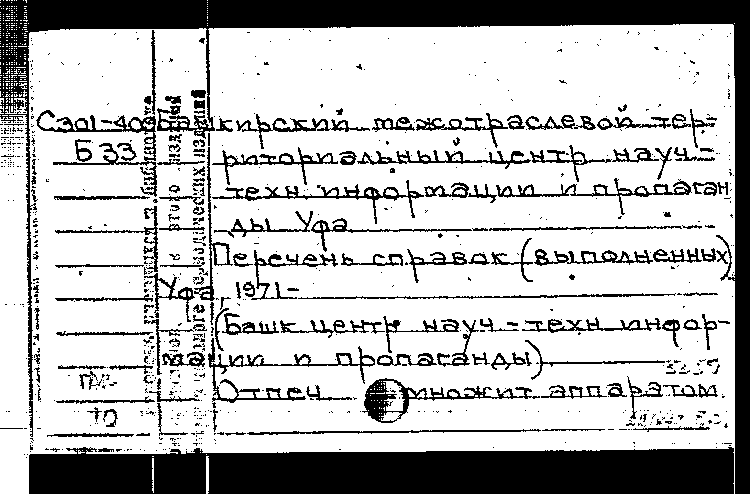 С301-400 Башкирский межотраслевой тер-
Б 33 риториальный центр науч-
техн. информации и пропаган
ды Уфа
Перечень справок (выполненных)
Уфа, 1971-
(Башк центр науч-техн инфор-
мации и пропаганды)
Отпеч множит аппаратом.